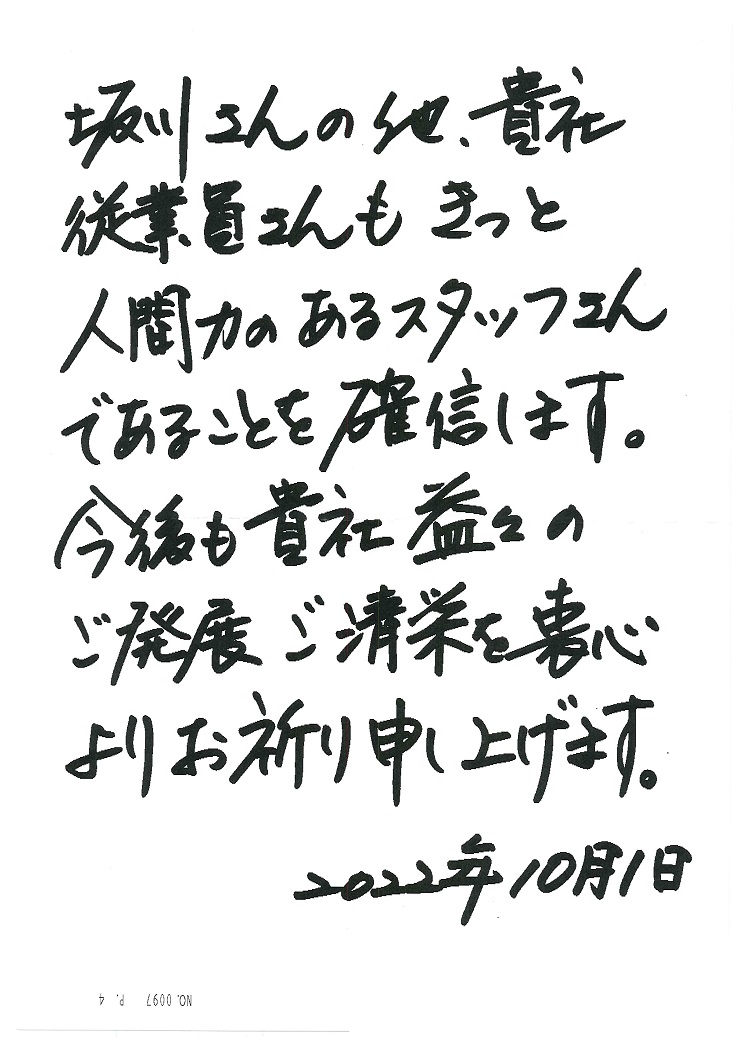 坂川さんの他、貴社
従業員さんも きっと
人間力の あるスタッフさん
であることを 確信します。
今後も 貴社 益々の
ご発展 ご清栄を 衷心
よりお祈り申し上げます。
2022年10月1日
NO. 0097 P. 4